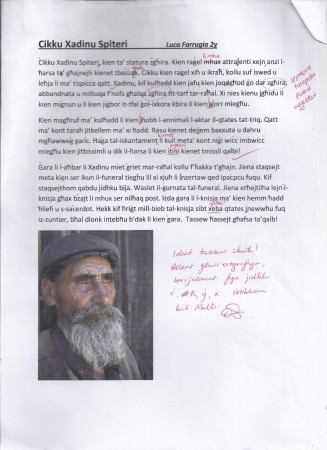 Cikku Xadinu Spiteri Luca Farrugia 2y
Cikku Xadinu Spiteri, kien ta' statura żgħira. Kien raġel mhux attraenti xejn anzi l-
ħarsa ta' għajnejh kienet tbeżżak. Cikku kien raġel xiħ u ikraħ, kollu suf iswed u
leħja li ma' tispicca qatt. Xadinu, kif kulħadd kien jafu kien joqgħod ġo dar żgħira,
abbandnata u mitluqa f'nofs għalqa żgħira fit-tarf tar-raħal. Xi nies kienu jgħidu li
kien miġnun u li kien jiġbor it-tfal ġol-ixkora kbira li kien jġorr miegħu.
Kien magħruf ma' kulħadd li kien jħobb l-annimali l-aktar il-qtates tat-triq. Qatt
ma' kont tarah jitkellem ma' xi ħadd. Rasu kienet dejjem baxxuta u daħru
mgħawweġ ġarċ. Ħaġa tal-iskantament li kull meta' kont niġi wicc imbwicc
miegħu kien jitbissimli u dik il-ħarsa li kien itini kienet tmissli qalbi!
Ġara li l-aħbar li Xadinu miet ġriet mar-raħal kollu f'ħakka t'għajn. Jiena staqsejt
meta kien ser ikun il-funeral tiegħu lil xi xjuħ li nzertaw qed ipaċpċu fuqu. Kif
staqsejthom qabdu jidħku bija. Waslet il-ġurnata tal-funeral. Jiena erħejtilha lejn il-
knisja għax bżajt li mhux ser nilħaq post. Iżda ġara li l-knisja ma' kien hemm ħadd
ħliefi u s-saċerdot. Hekk kif ħriġt mill-bieb tal-knisja sibt xeba qtates jnewwħu fuq
iz-zuntier, bħal dlonk intebħu b'dak li kien ġara. Tassew ħassejt għafsa ta'qalb!
Ideat tassew sbieħ!